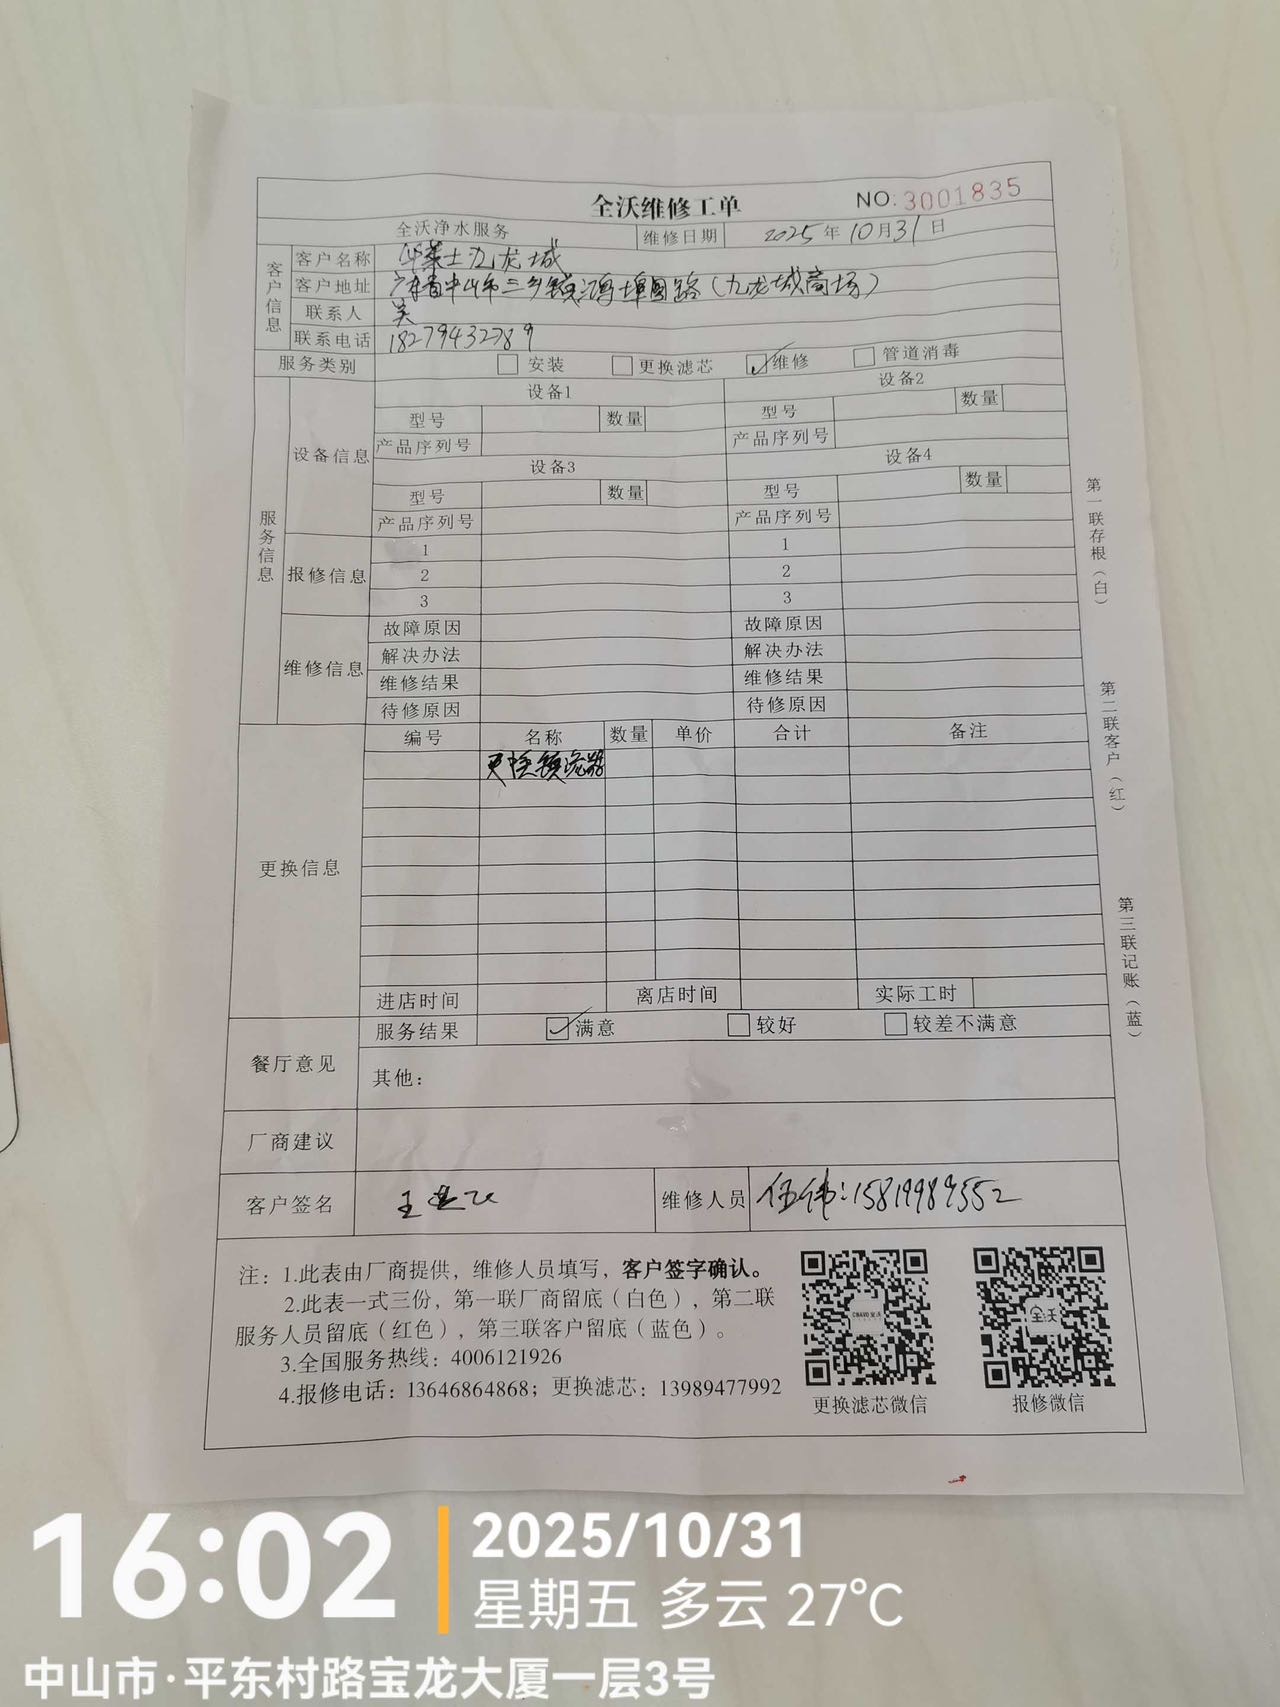 全沃维修工单
NO:3001835
全沃净水服务 维修日期 2025年10月31日
客户信息
客户名称 华莱士九龙城
客户地址 广东省中山市三乡镇鸿埠园路(九龙城商场)
联系人 吴
联系电话 18279432789
服务类别 安装 更换滤芯 维修 管道消毒
服务信息
设备信息
设备1 设备2
型号 数量 型号 数量
产品序列号 产品序列号
设备3 设备4
型号 数量 型号 数量
产品序列号 产品序列号
报修信息
1 1
2 2
3 3
维修信息
故障原因 故障原因
解决办法 解决办法
维修结果 维修结果
待修原因 待修原因
更换信息
编号 名称 数量 单价 合计 备注
更换预滤器
进店时间 离店时间 实际工时
餐厅意见
服务结果 满意 较好 较差不满意
其他:
厂商建议
客户签名 王 维修人员 伍伟:15819989552
注: 1.此表由厂商提供，维修人员填写，客户签字确认。
2.此表一式三份，第一联厂商留底(白色)，第二联
服务人员留底(红色)，第三联客户留底(蓝色)。
3.全国服务热线: 4006121926
4.报修电话: 13646864868; 更换滤芯: 13989477992
更换滤芯微信
全沃
报修微信
第一联存根(白)
第二联客户(红)
第三联记账(蓝)
16:02
2025/10/31
星期五 多云 27℃
中山市·平东村路宝龙大厦一层3号